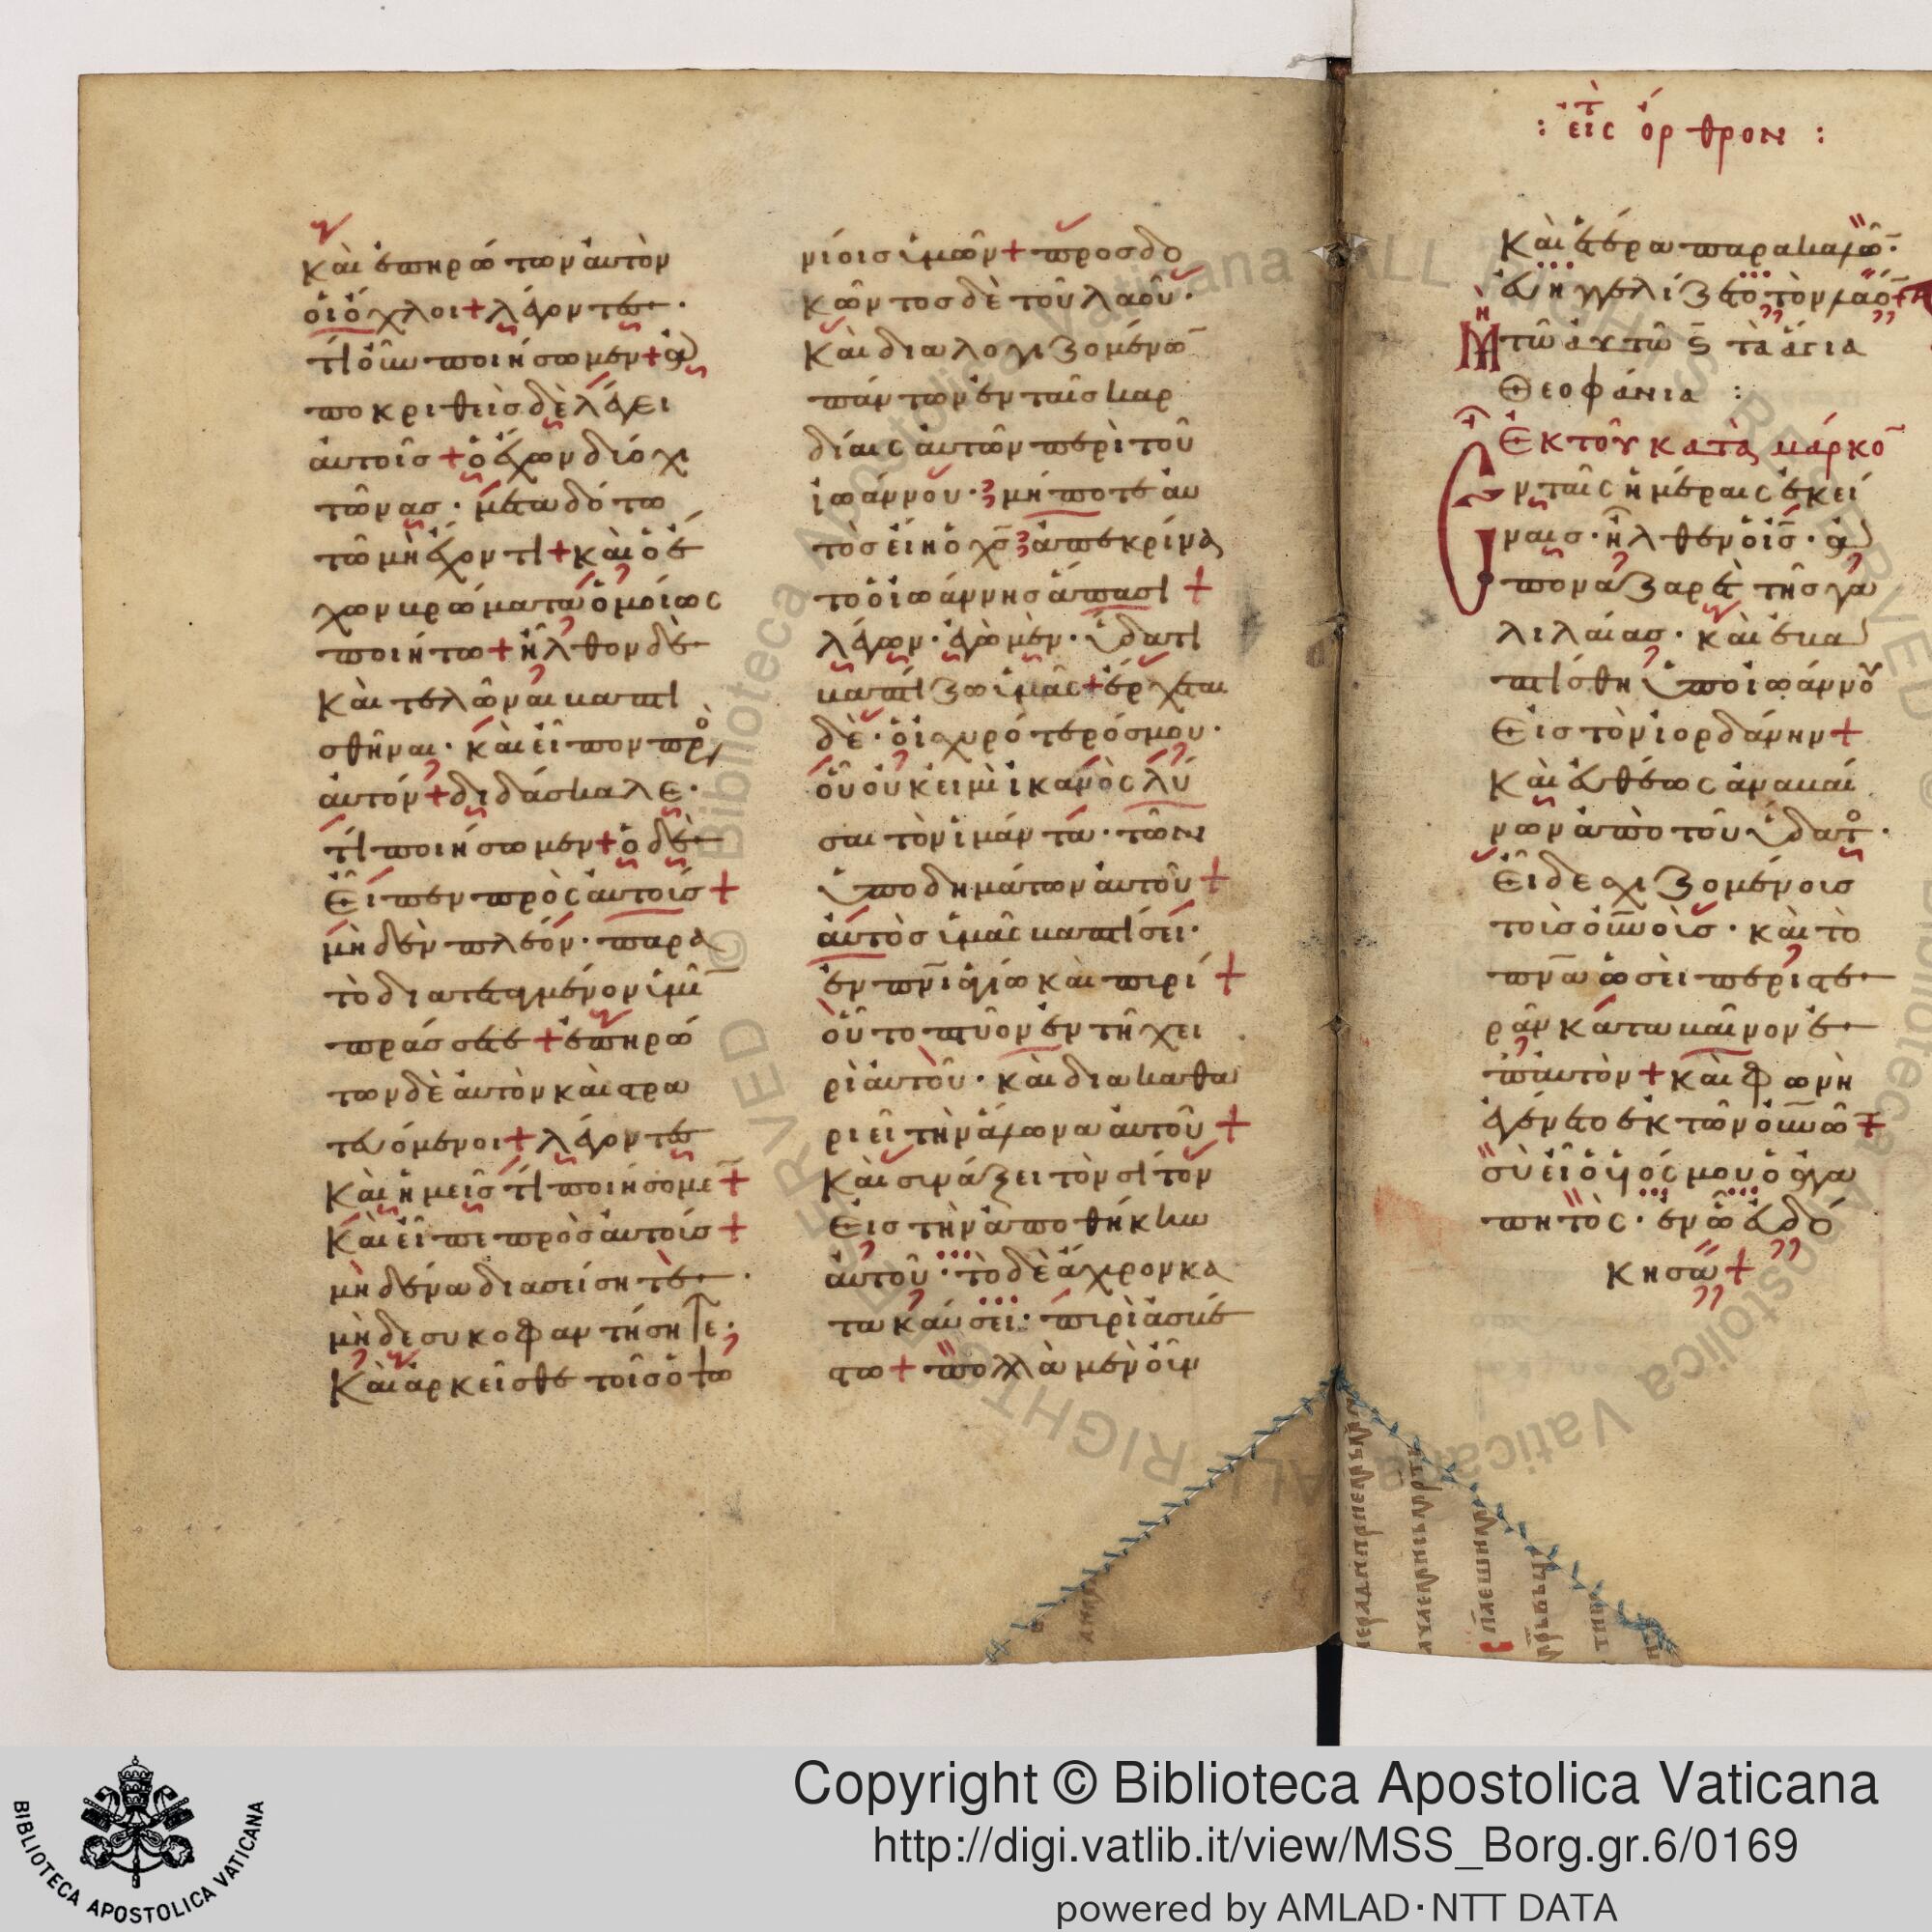 Καὶ ἐπηρώτων ἀυτὸν
οἱ ὄχλοι + λέγοντε·
τί οὖν ποιήσωμεν + ἀ
ποκριθεὶς δὲ λέγει
ἀυτοῖς + ὁ ἔχων δύο χι
τῶνας · μεταδότω
τῶ μὴ ἔχοντι + καὶ ὁ ἔ
χων βρώματα ὁμοίως
ποιήτω + ἦλθον δὲ
Καὶ τελῶναι βαπτι
σθῆναι · καὶ εἶπον πρ
ἀυτόν + διδάσκαλε·
τί ποιήσωμεν + ὁ δὲ
Εἶπεν πρὸς ἀυτοίς +
μὴ δὲν πλέον · παρα
τὸ διατεταγμένον ἱμῖ
πράσσετε + ἐπηρώ
των δὲ ἀυτὸν καὶ στρα
τευόμενοι + λέγοντε
Καὶ ἡμεῖς τί ποιήσομε +
Καὶ εἶπε πρὸς ἀυτοίς +
μὴ δένα διασείσητὲ·
μὴ δε συκοφαντήσητε·
Καὶ ἀρκεῖσθε τοῖς ὀψω
νίοις ἱμῶν + προσδο
κῶντος δὲ τοῦ λαοῦ·
Καὶ διαλογιζομένω
πάντων ἐν ταῖς καρ
δίαις ἀυτῶν περὶ τοῦ
ἰωάννου · μήποτε ἀυ
τὸς εἴη ὁ χς ἀπεκρίνα
το ὁ ἰωάννης ἅπασι +
λέγων · ἐγὼ μὲν · ὕδατι
βαπτίζω ἱμᾶς + ἔρχεται
δὲ · ὁ ἰσχυρότερός μου·
οὗ οὐκ ειμὶ ἱκανὸς λύ
σαι τὸν ἱμάντα · τῶν
ὑποδημάτων ἀυτοῦ +
ἀυτὸς ἱμᾶς βαπτίσει·
ἐν πνι ἁγίω καὶ πιρί +
οὗ το πτύον ἐν τῆ χει
ρὶ ἀυτοῦ · καὶ διακαθα
ριεῖ τὴν ἅλωνα ἀυτοῦ +
Καὶ σινάξει τὸν σίτον
Εἰς τὴν ἀποθήκην
ἀυτοῦ · τὸ δὲ ἄχιρον κα
τακαύσει · πιρὶ ἀσβέ
στω + πολλὰ μὲν οὖν
: εἰς ὄρθρον :
Καὶ ἕτερα παρακαλῶ·
ἐυηγγελίζετο τὸν λαό +
Μη τῶ ἀυτῶ ς τὰ ἅγια
Θεοφάνια :
Ἐκ τοῦ κατὰ μάρκο
Εν ταῖς ἡμέραις ἐκεί
ναις · ἦλθεν ὁ ις · ἀ
πο ναζαρὲτ τῆς γα
λιλαίας · καὶ ἐβα
πτίσθη ὑπο ἰωάννου
Εἰς τὸν ἰορδάνην +
Καὶ ἐυθέως ἀναβαί
νων ἀπὸ τοῦ ὕδατ·
Εἶδε σχιζομένοις
τοὶς ουνοὶς · καὶ τὸ
πνα ὡσὲι περιστε
ρὰν καταβαῖνον ἐ
π ἀυτὸν + καὶ φωνὴ
ἐγένετο ἐκ τῶν ουνω +
σὺ εἶ ὁ ὑιός μου ὁ ἀγα
πητὸς · ἐν ὧ ἐυδό
κησα +
Copyright © Biblioteca Apostolica Vaticana
http://digi.vatlib.it/view/MSS_Borg.gr.6/0169
powered by AMLAD·NTT DATA
BIBLIOTECA APOSTOLICA VATICANA